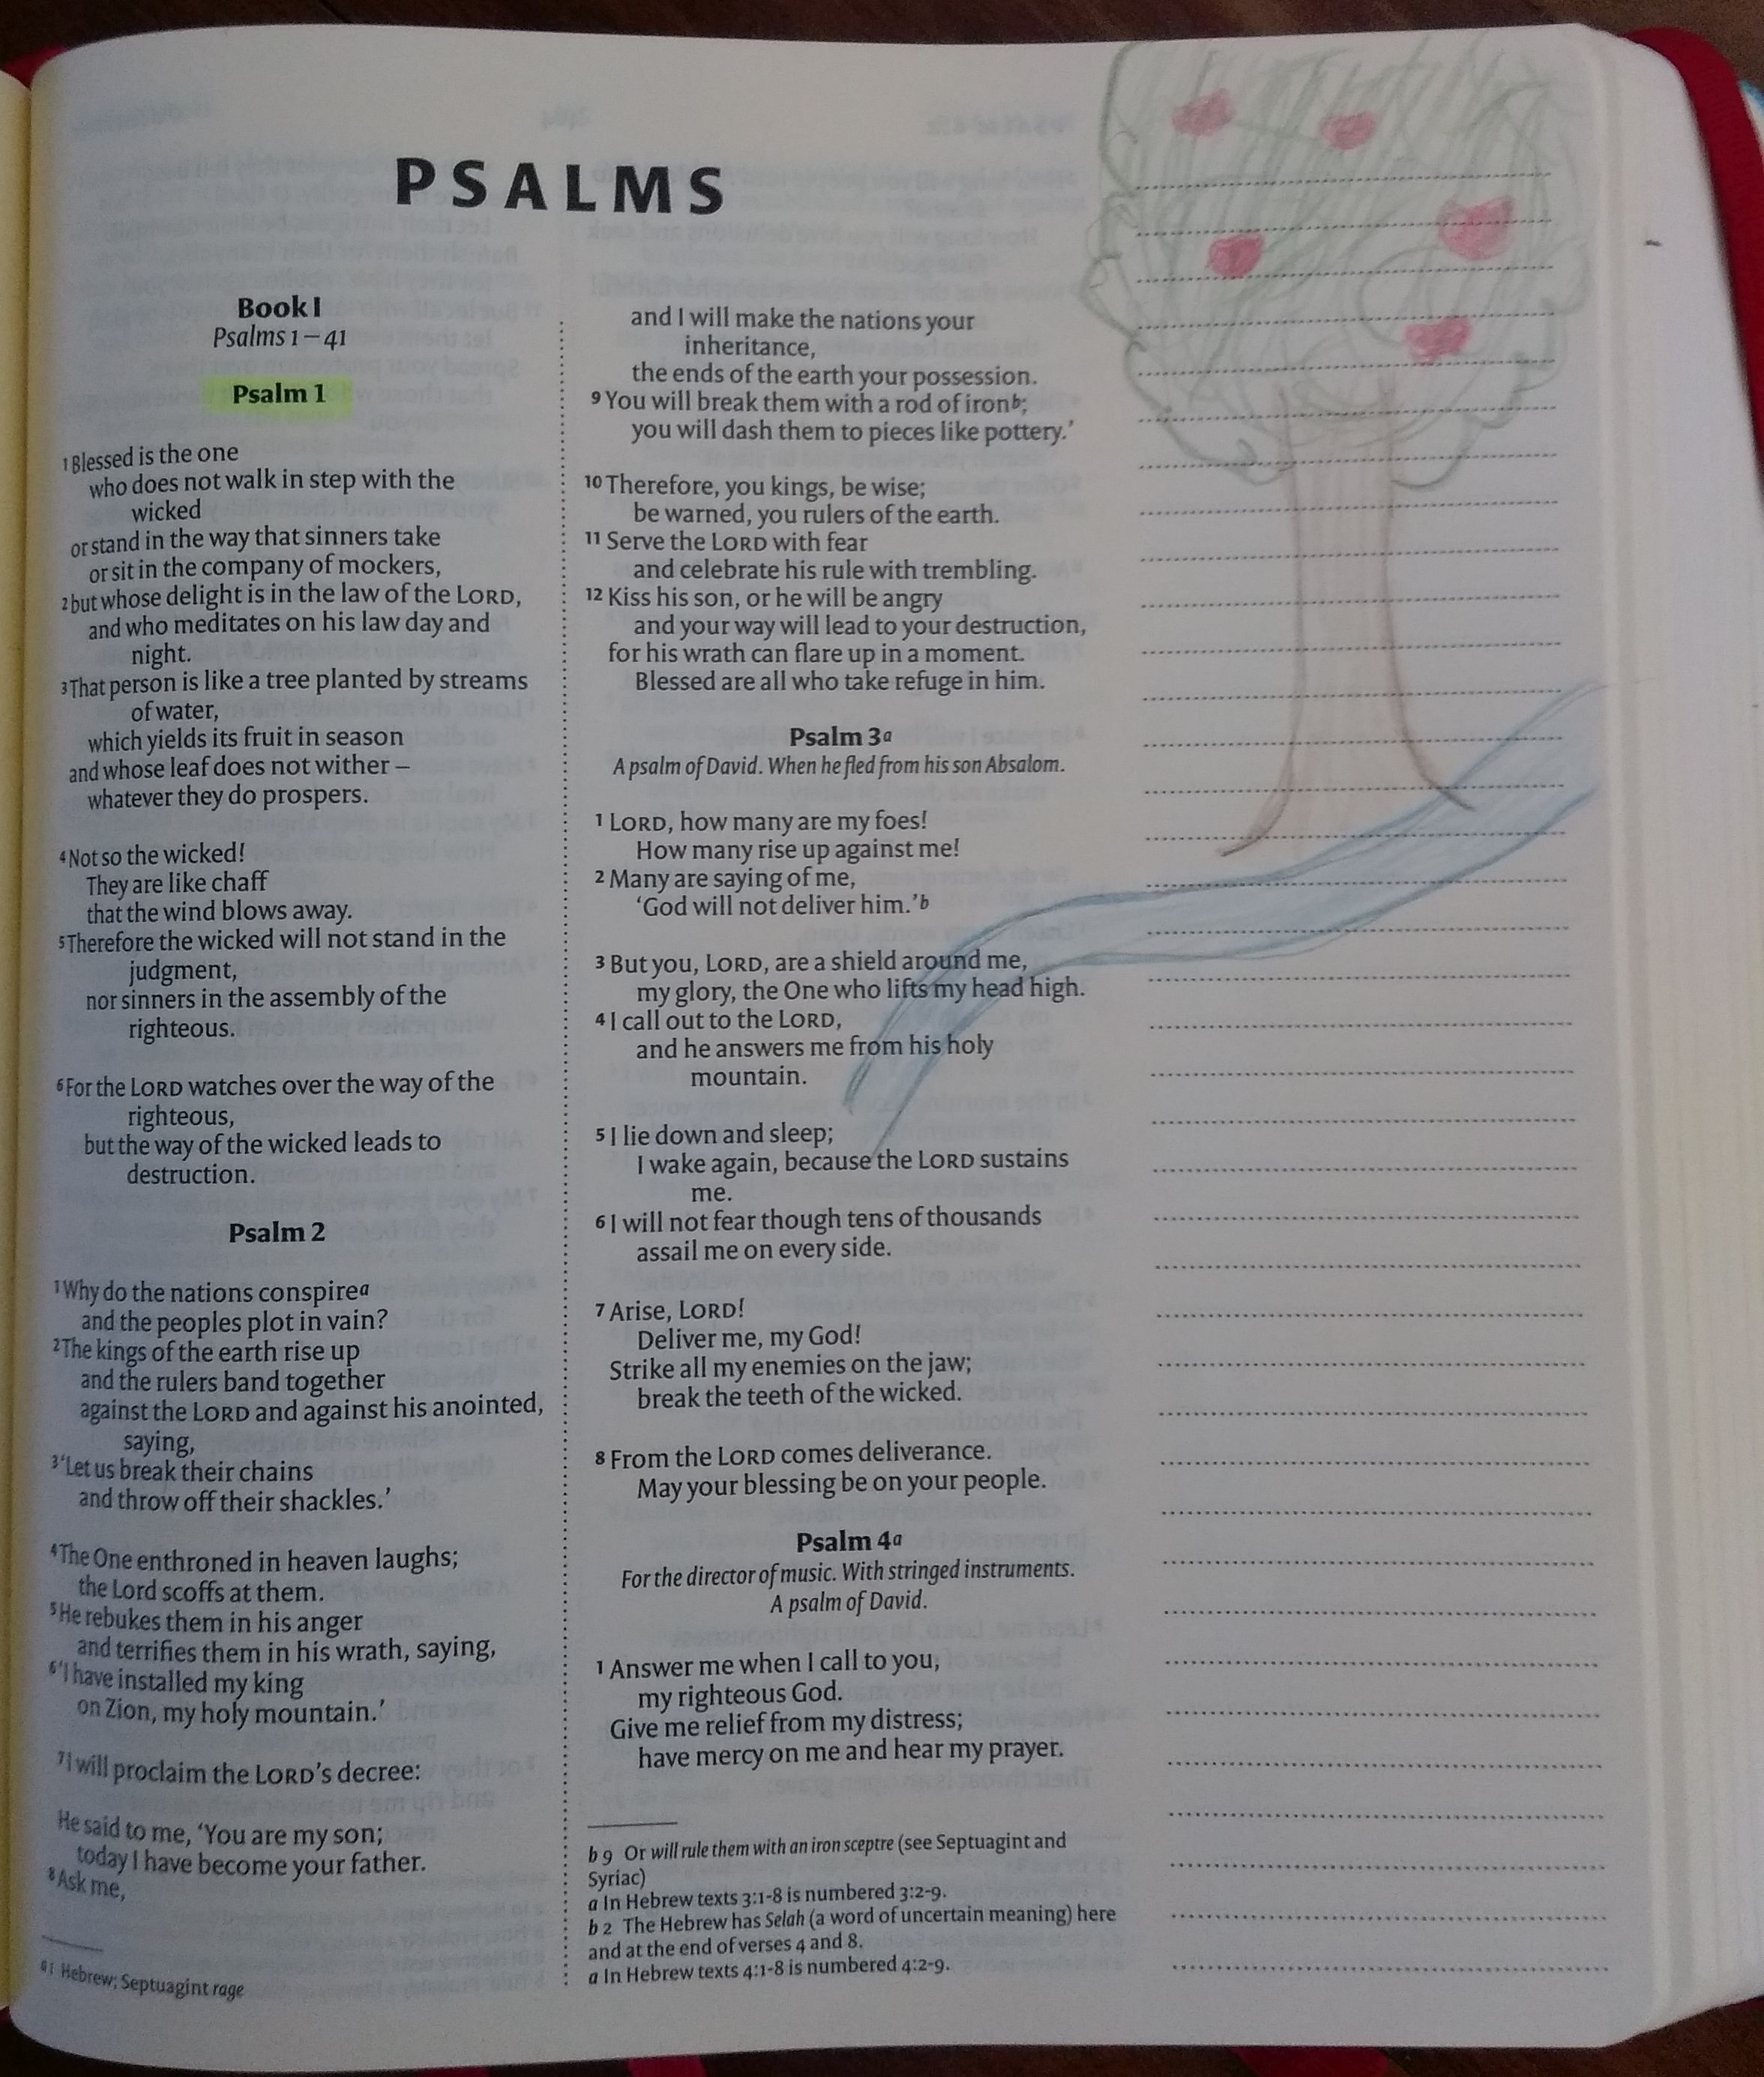 PSALMS
Book I
Psalms 1 – 41
Psalm 1
1 Blessed is the one
who does not walk in step with the
wicked
or stand in the way that sinners take
or sit in the company of mockers,
2 but whose delight is in the law of the LORD,
and who meditates on his law day and
night.
3 That person is like a tree planted by streams
of water,
which yields its fruit in season
and whose leaf does not wither –
whatever they do prospers.
4 Not so the wicked!
They are like chaff
that the wind blows away.
5 Therefore the wicked will not stand in the
judgment,
nor sinners in the assembly of the
righteous.
6 For the LORD watches over the way of the
righteous,
but the way of the wicked leads to
destruction.
Psalm 2
1 Why do the nations conspire a
and the peoples plot in vain?
2 The kings of the earth rise up
and the rulers band together
against the LORD and against his anointed,
saying,
3 ‘Let us break their chains
and throw off their shackles.’
4 The One enthroned in heaven laughs;
the Lord scoffs at them.
5 He rebukes them in his anger
and terrifies them in his wrath, saying,
6 ‘I have installed my king
on Zion, my holy mountain.’
7 I will proclaim the LORD’s decree:
He said to me, ‘You are my son;
today I have become your father.
8 Ask me,
a 1 Hebrew; Septuagint rage
and I will make the nations your
inheritance,
the ends of the earth your possession.
9 You will break them with a rod of iron b;
you will dash them to pieces like pottery.’
10 Therefore, you kings, be wise;
be warned, you rulers of the earth.
11 Serve the LORD with fear
and celebrate his rule with trembling.
12 Kiss his son, or he will be angry
and your way will lead to your destruction,
for his wrath can flare up in a moment.
Blessed are all who take refuge in him.
Psalm 3 a
A psalm of David. When he fled from his son Absalom.
1 LORD, how many are my foes!
How many rise up against me!
2 Many are saying of me,
‘God will not deliver him.’ b
3 But you, LORD, are a shield around me,
my glory, the One who lifts my head high.
4 I call out to the LORD,
and he answers me from his holy
mountain.
5 I lie down and sleep;
I wake again, because the LORD sustains
me.
6 I will not fear though tens of thousands
assail me on every side.
7 Arise, LORD!
Deliver me, my God!
Strike all my enemies on the jaw;
break the teeth of the wicked.
8 From the LORD comes deliverance.
May your blessing be on your people.
Psalm 4 a
For the director of music. With stringed instruments.
A psalm of David.
1 Answer me when I call to you,
my righteous God.
Give me relief from my distress;
have mercy on me and hear my prayer.
b 9 Or will rule them with an iron sceptre (see Septuagint and
Syriac)
a In Hebrew texts 3:1-8 is numbered 3:2-9.
b 2 The Hebrew has Selah (a word of uncertain meaning) here
and at the end of verses 4 and 8.
a In Hebrew texts 4:1-8 is numbered 4:2-9.